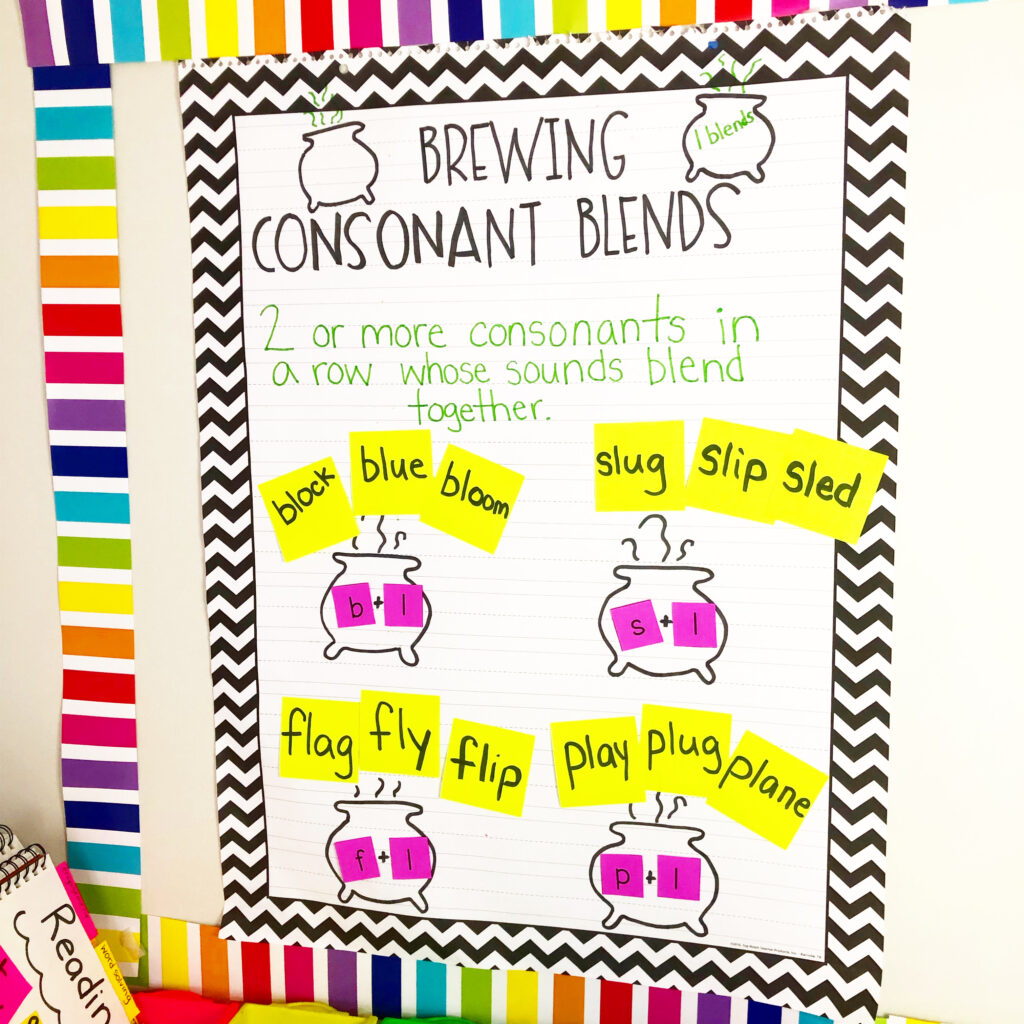 BREWING
l blends
CONSONANT BLENDS
2 or more consonants in
a row whose sounds blend
together.
block blue bloom
slug slip sled
b + l
s + l
flag fly flip
play plug plane
f + l
p + l
Readin
word solving